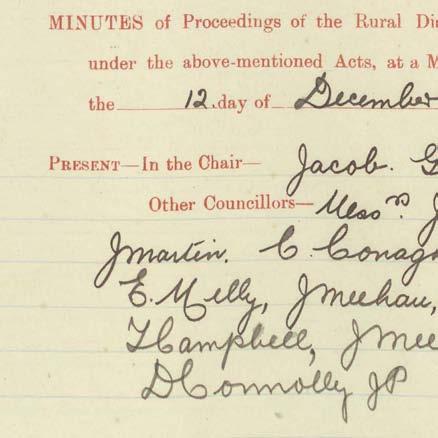 MINUTES of Proceedings of the Rural Di
under the above-mentioned Acts, at a M
the 12 day of December
PRESENT—In the Chair— Jacob. G
Other Councillors— Messrs. J
J Martin. C. Conagh
E. Melly, J Meehan,
T Campbell, J Mee
D Connolly JP